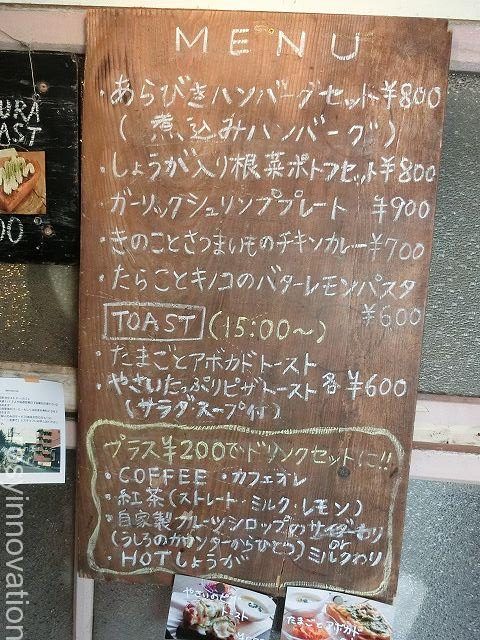 MENU
・あらびきハンバーグセット ¥800
(煮込みハンバーグ)
・しょうが入り根菜ポトフセット ¥800
・ガーリックシュリンププレート ¥900
・きのことさつまいものチキンカレー ¥700
・たらことキノコのバターレモンパスタ
¥600
TOAST (15:00〜)
・たまごとアボカドトースト
・やさいたっぷりピザトースト 各¥600
(サラダ・スープ付)
プラス¥200でドリンクセットに!!
・COFFEE ・カフェオレ
・紅茶(ストレート・ミルク・レモン)
・自家製フルーツシロップのサイダーわり
(うしろのカウンターからひとつ) or ミルクわり
・HOTしょうが
URA
AST
00
たまごとアボカド